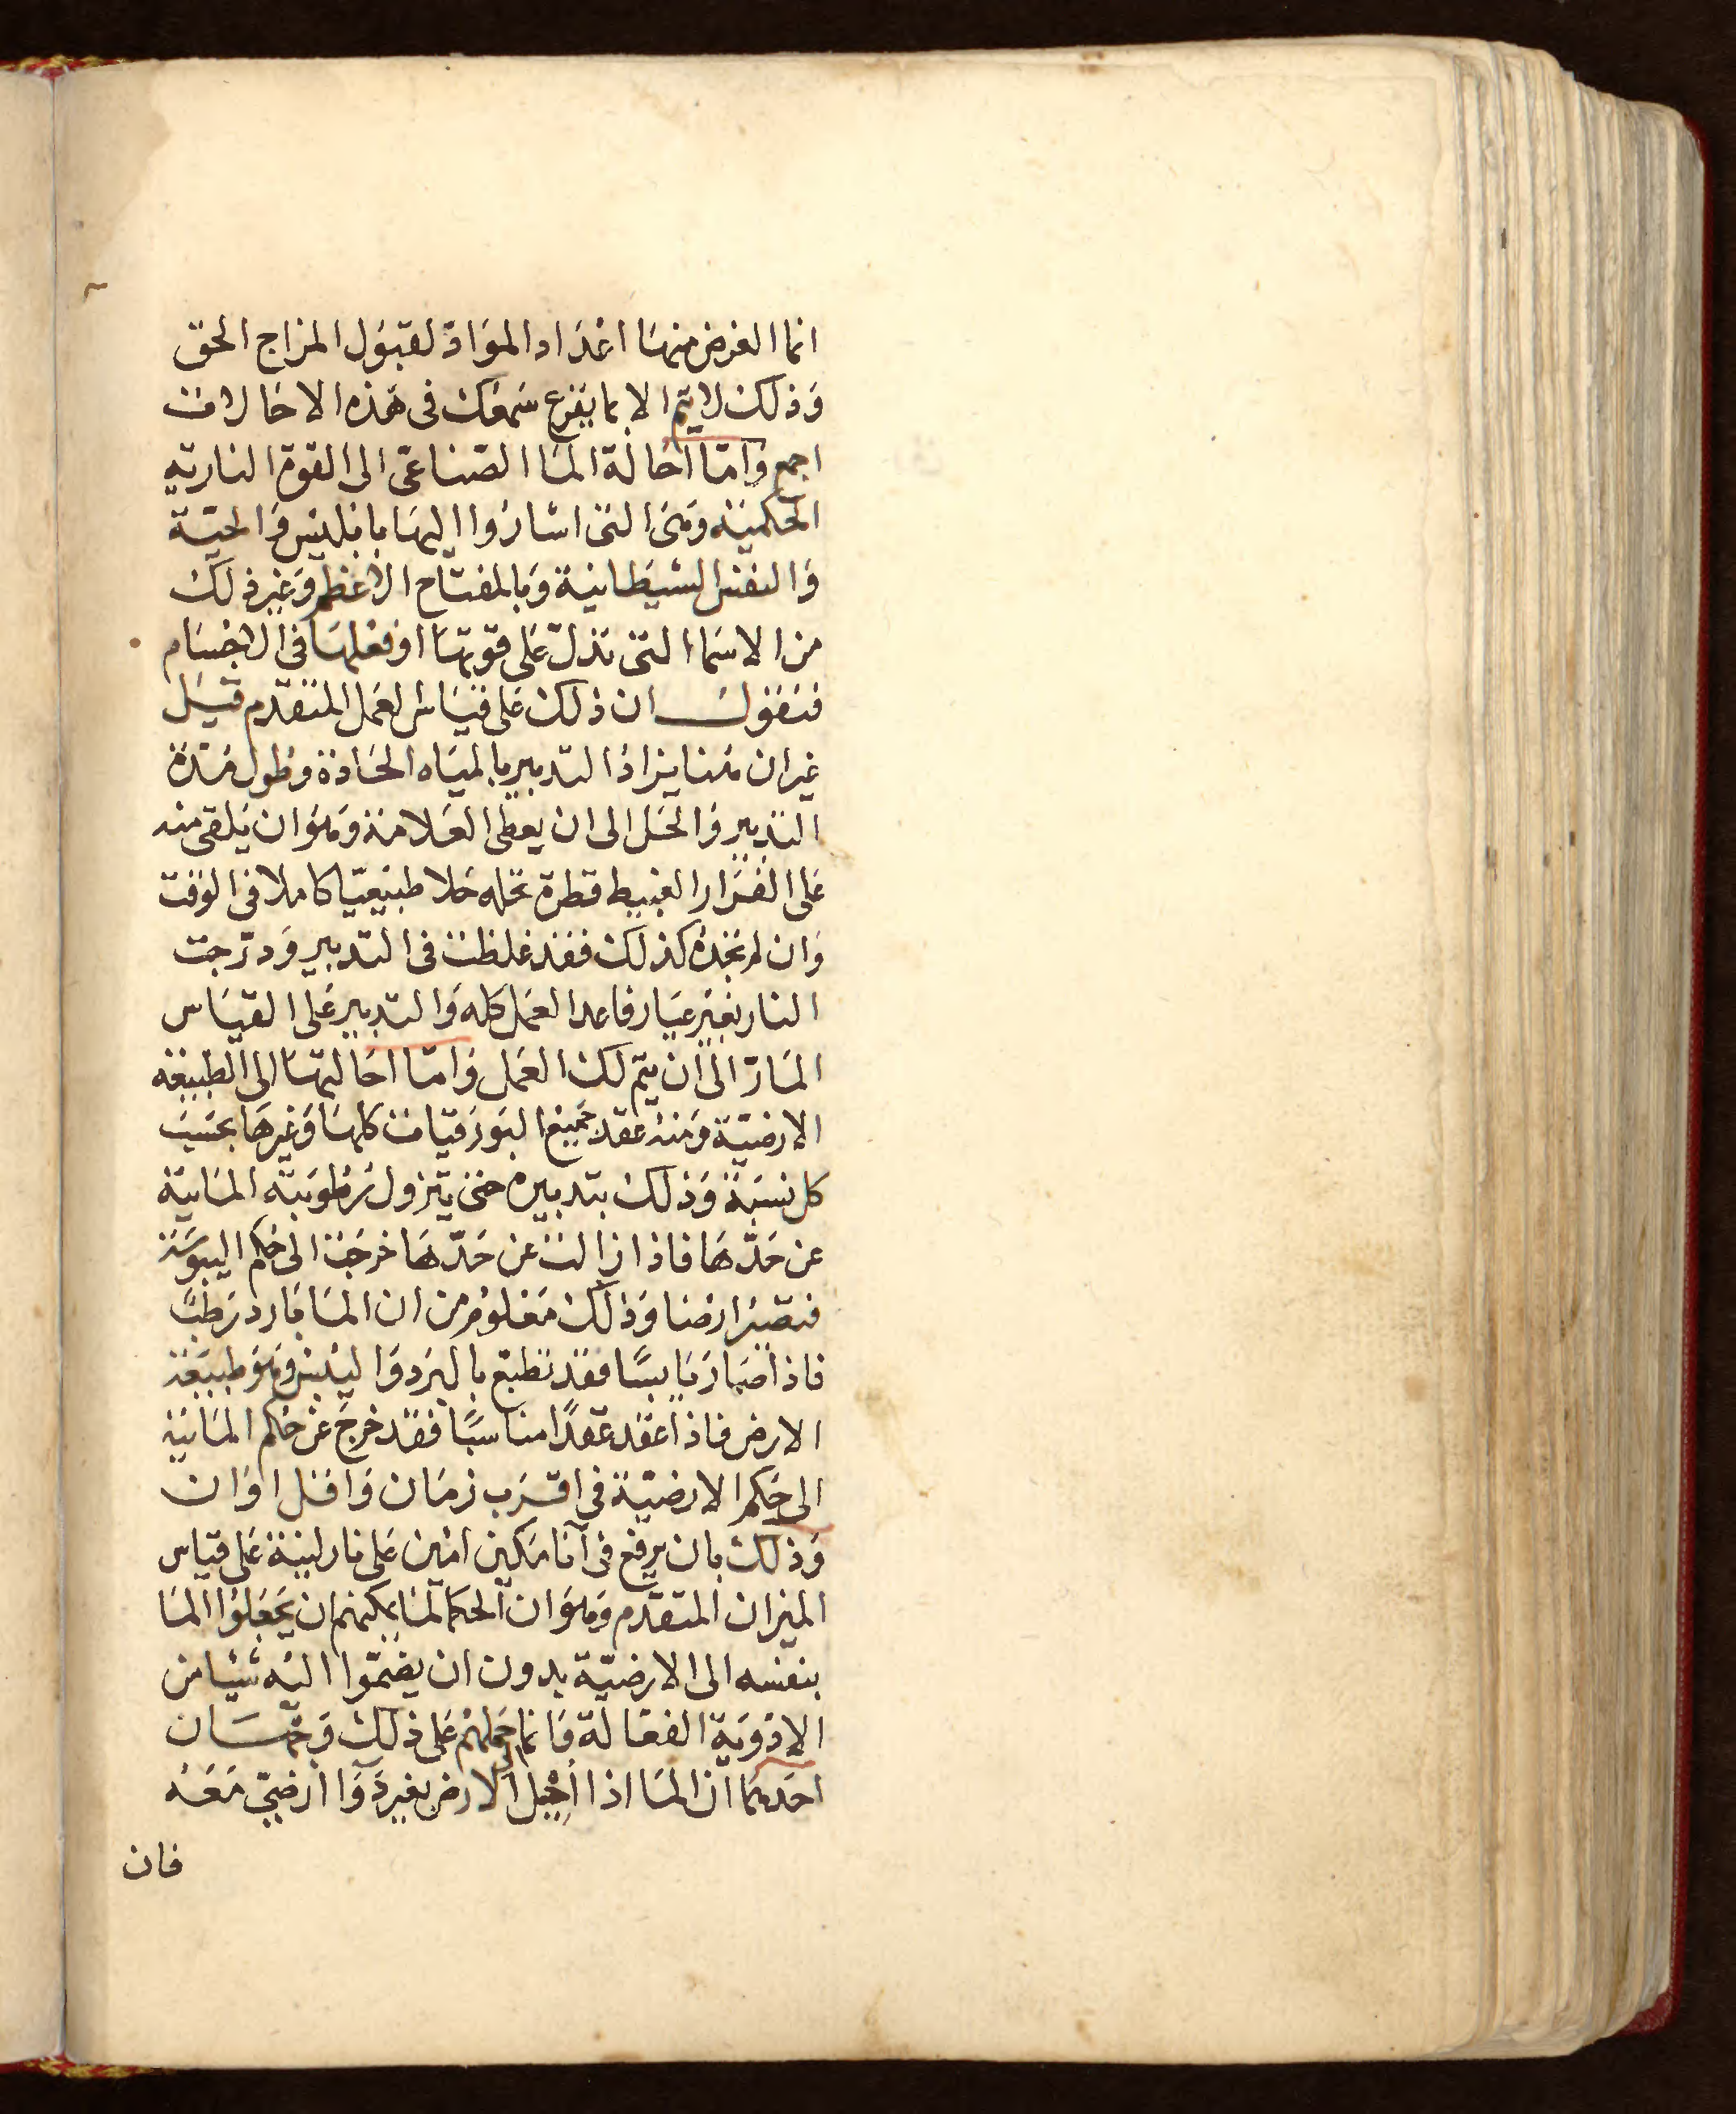 انما الغرض منها اعداد المواد لقبول المزاج الحق
وذلك لا يتم الا بما يقرع سمعك فى هذه الاحالات
اجمع واما احالة الما الصناعى الى القوة النارية
الحكمية وهى التى اشاروا اليها بابليس والحية
والنفس الشيطانية وبالمفتاح الاعظم وغير ذلك
من الاسما التى تدل على قوتها او فعلها فى الاجسام
فنقول ان ذلك على قياس العمل المتقدم قبل
غير ان هنا يزاد التدبير بالمياه الحادة وطول مدة
التدبير والحل الى ان يعطى العلامة وهو ان يلقى منه
على الفرار العبيط قطرة تحله حلا طبيعيا كاملا فى الوقت
وان لم تجده كذلك فقد غلطت فى التدبير ودرجت
النار بغير عيار فاعد العمل كله والتدبير على القياس
المار الى ان يتم لك العمل واما احالتها الى الطبيعة
الارضية ومنه عقد جميع البورقيات كلها وغيرها بحسب
كل نسبة وذلك بتدبيره حتى يتزول رطوبته المايية
عن حدها فاذا زالت عن حدها خرجت الى حكم اليبوسة
فتصير ارضا وذلك معلوم من ان الما بارد رطب
فاذا صار يابسا فقد تطبع بالبرد واليبس وهو طبيعة
الارض فاذا عقد عقدا مناسبا فقد خرج عن حكم المائية
الى حكم الارضية فى اقرب زمان واقل اوان
وذلك بان يرفع فى انا مكين امين على نار لينة على قياس
الميزان المتقدم وهو ان الحكما لما يمكنهم ان يجعلوا الما
بنفسه الى الارضية بدون ان يضموا اليه شيا من
الادوية الفعالة فانما حملهم على ذلك وجهان
احدهما ان الما اذا احيل الى الارض بغير دوا ارضى معه
فان